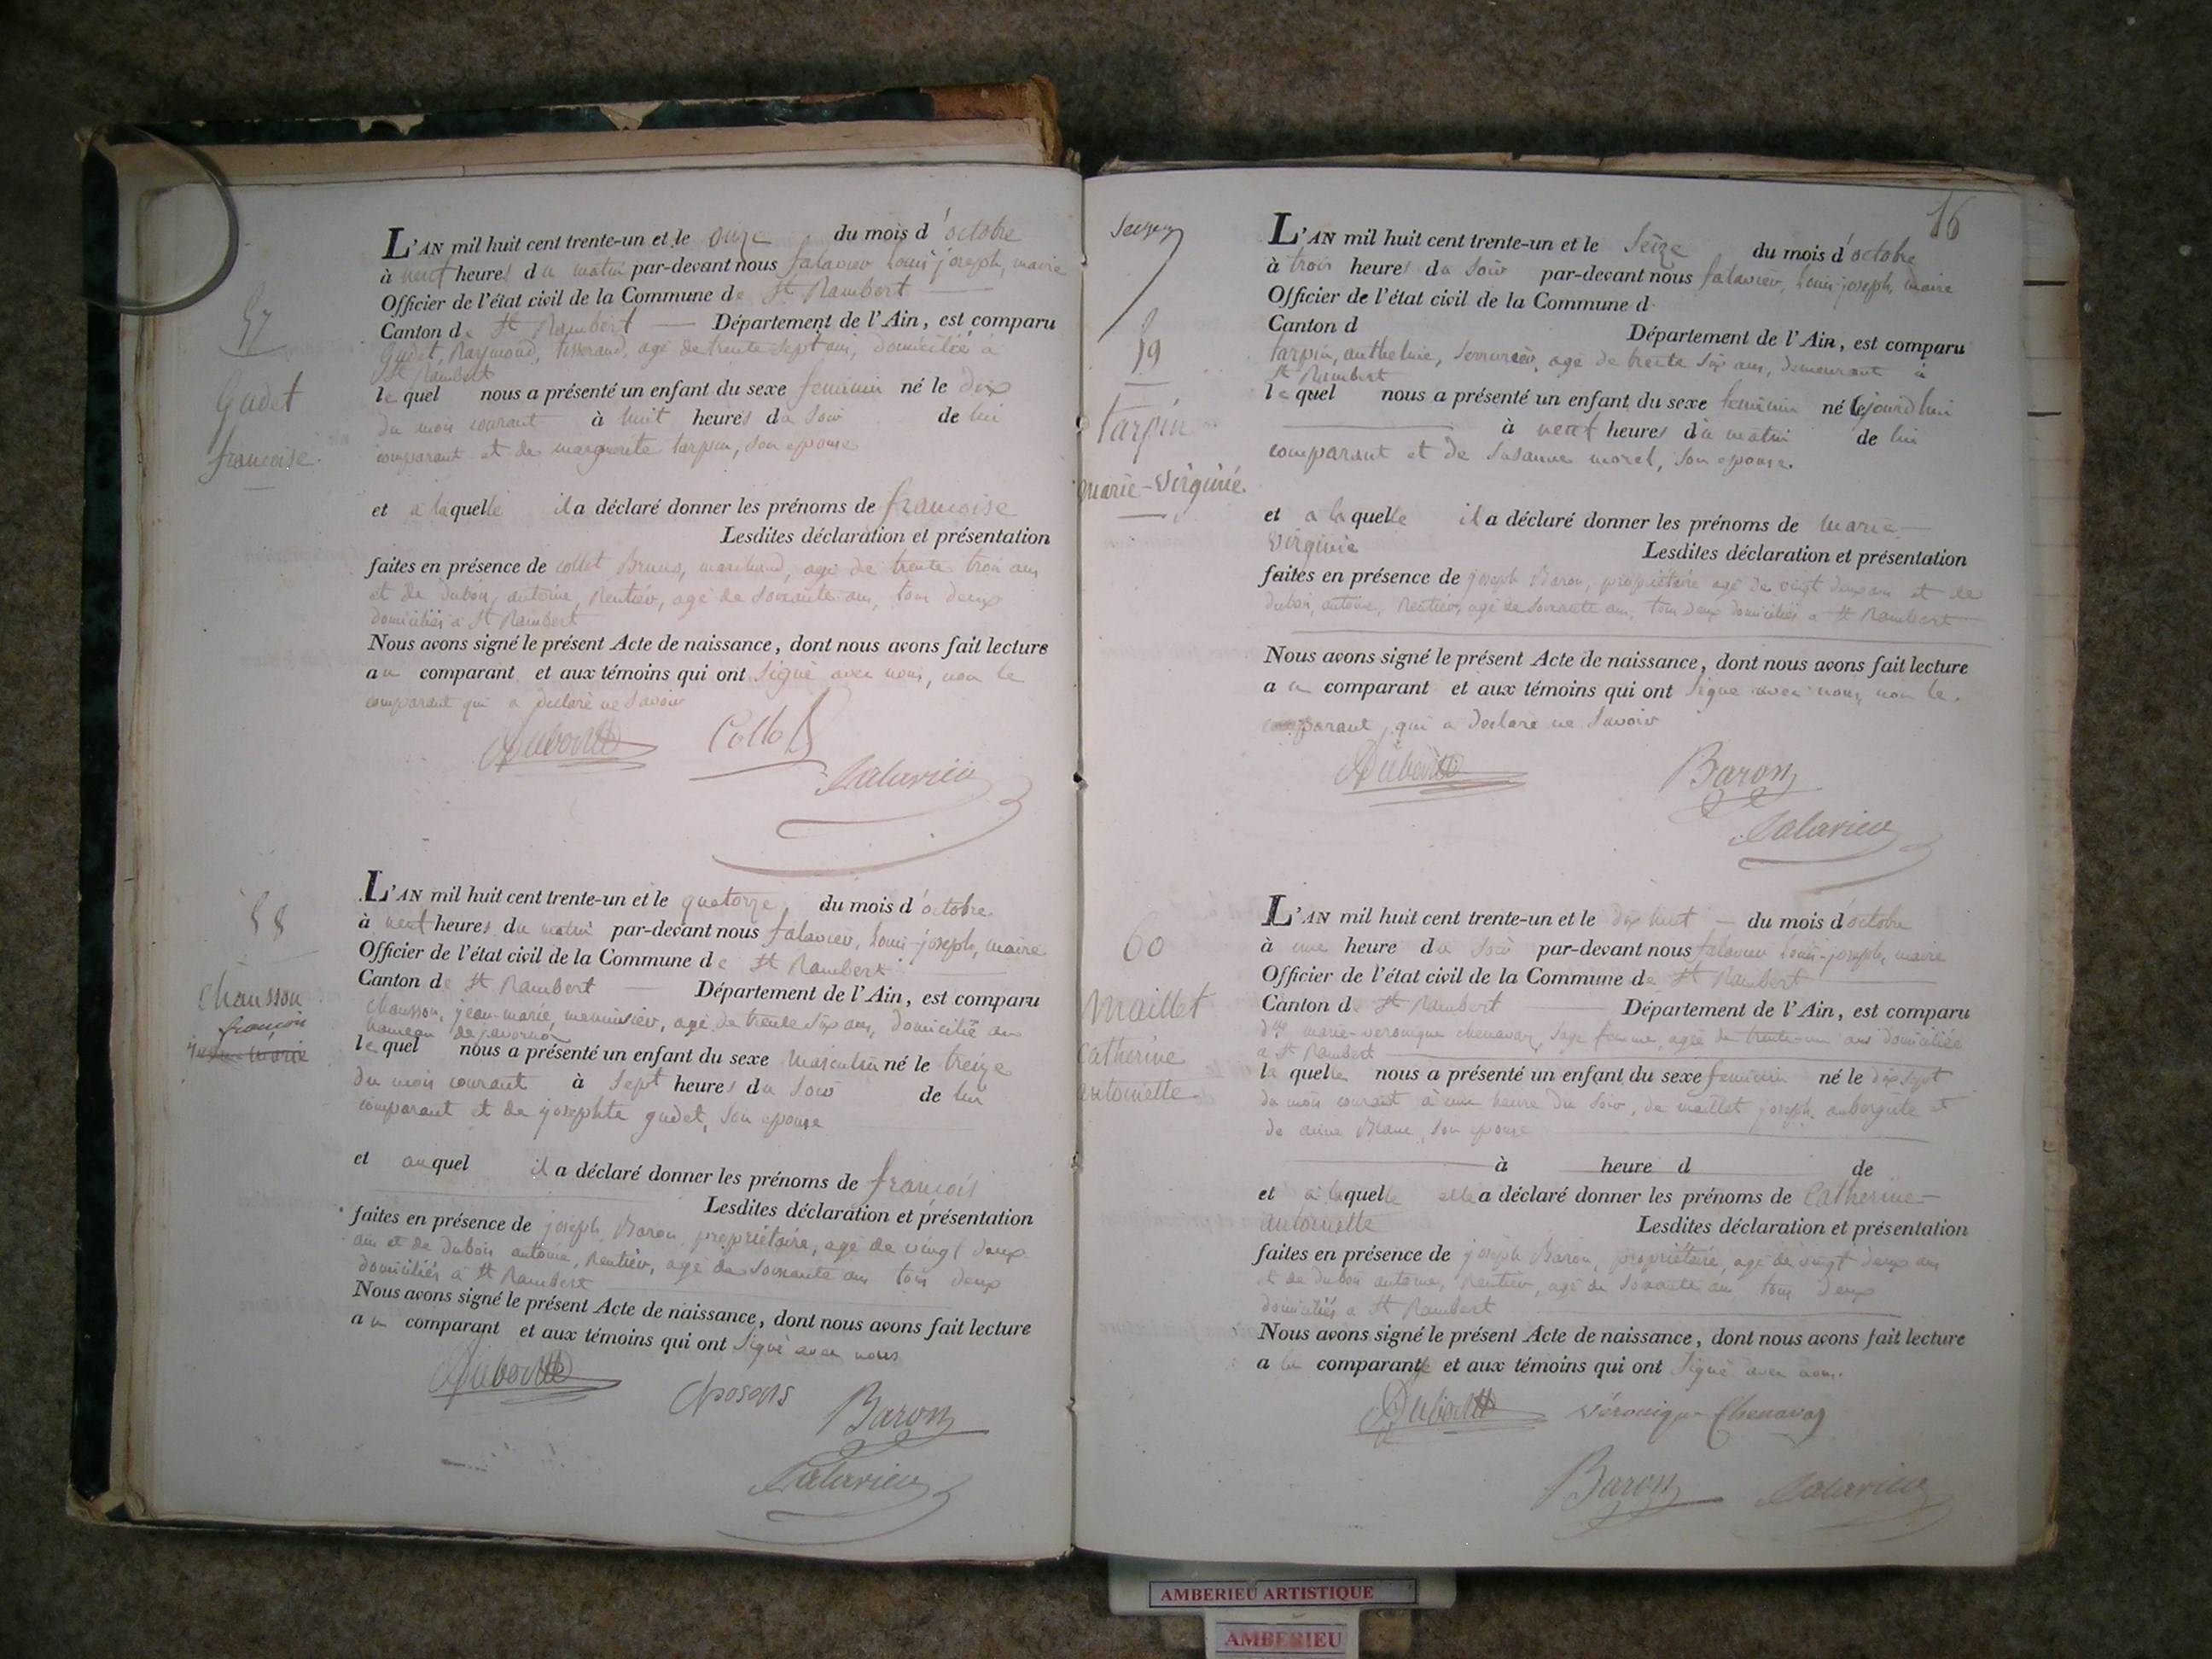 57
Gudet
françoise
L'AN mil huit cent trente-un et le onze du mois d'octobre
à neuf heures du matin par-devant nous falavier louis-joseph, maire
Officier de l'état civil de la Commune de St Rambert
Canton de St Rambert Département de l'Ain, est comparu
Gudet, Raymond, tisserand, agé de trente sept ans, domicilié à
St Rambert
lequel nous a présenté un enfant du sexe feminin né le dix
du mois courant à huit heures du soir de lui
comparant et de marguerite tarpin, son epouse
et a laquelle il a déclaré donner les prénoms de françoise
Lesdites déclaration et présentation
faites en présence de collet Bruno, marchand, agé de trente trois ans
et de dubois, antoine, Rentier, agé de soixante ans, tous deux
domiciliés à St Rambert
Nous avons signé le présent Acte de naissance, dont nous avons fait lecture
au comparant et aux témoins qui ont signé avec nous, non le
comparant qui a declaré ne savoir
Collet
falavier
58
Chausson
françois
L'AN mil huit cent trente-un et le quatorze du mois d'octobre
à neuf heures du matin par-devant nous falavier, louis-joseph, maire
Officier de l'état civil de la Commune de St Rambert
Canton de St Rambert Département de l'Ain, est comparu
chausson, jean-marie, menuisier, agé de trente six ans, domicilié au
hameau de javornod
lequel nous a présenté un enfant du sexe masculin né le treize
du mois courant à sept heures du soir de lui
comparant et de josephte gudet, son epouse
et auquel il a déclaré donner les prénoms de françois
Lesdites déclaration et présentation
faites en présence de joseph Baron, propriétaire, agé de vingt deux
ans et de dubois antoine, Rentier, agé de soixante ans tous deux
domiciliés à St Rambert
Nous avons signé le présent Acte de naissance, dont nous avons fait lecture
au comparant et aux témoins qui ont signé avec nous
Baron
falavier
16
59
Tarpin
Marie-Virginie
L'AN mil huit cent trente-un et le seize du mois d'octobre
à trois heures du soir par-devant nous falavier, louis-joseph, maire
Officier de l'état civil de la Commune d
Canton d Département de l'Ain, est comparu
tarpin, anthelme, serrurier, agé de trente six ans, demeurant à
St Rambert
lequel nous a présenté un enfant du sexe feminin né cejourdhui
à neuf heures du matin de lui
comparant et de susanne morel, son epouse.
et a laquelle il a déclaré donner les prénoms de marie-
virginie Lesdites déclaration et présentation
faites en présence de joseph Baron, propriétaire agé de vingt deux ans et de
dubois, antoine, Rentier, agé de soixante ans, tous deux domiciliés a St Rambert
Nous avons signé le présent Acte de naissance, dont nous avons fait lecture
au comparant et aux témoins qui ont signé avec nous, non le
comparant, qui a declaré ne savoir
Baron
falavier
60
Maillet
Catherine
antoinette
L'AN mil huit cent trente-un et le dix huit du mois d'octobre
à une heure du soir par-devant nous falavier louis-joseph, maire
Officier de l'état civil de la Commune de St Rambert
Canton de St Rambert Département de l'Ain, est comparu
dlle marie-veronique chenavaz, sage femme, agée de trente-un ans domiciliée
a St Rambert
laquelle nous a présenté un enfant du sexe feminin né le dix sept
du mois courant à une heure du soir, de maillet joseph aubergiste et
de anne Blanc, son epouse
à heure d de
et a laquelle elle a déclaré donner les prénoms de Catherine-
antoinette Lesdites déclaration et présentation
faites en présence de joseph Baron, propriétaire, agé de vingt deux ans
et de dubois antoine, Rentier, agé de soixante ans tous deux
domiciliés a St Rambert
Nous avons signé le présent Acte de naissance, dont nous avons fait lecture
a la comparante et aux témoins qui ont signé avec nous.
Véronique Chenavaz
Baron falavier
AMBERIEU ARTISTIQUE
AMBERIEU